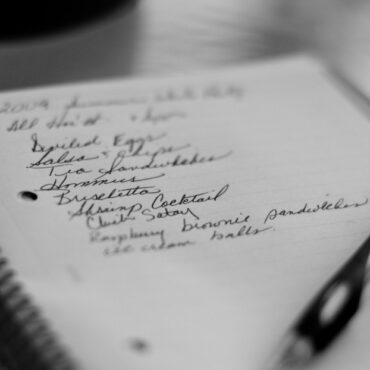 2009 Summer White Party
All Hors'
Deviled Eggs
Salsa & Chips
Tea Sandwiches
Hommus
Bruschetta
Shrimp Cocktail
Chick Satay
Raspberry brownie sandwiches
ice cream balls